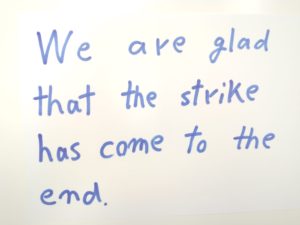 We are glad
that the strike
has come to the
end.